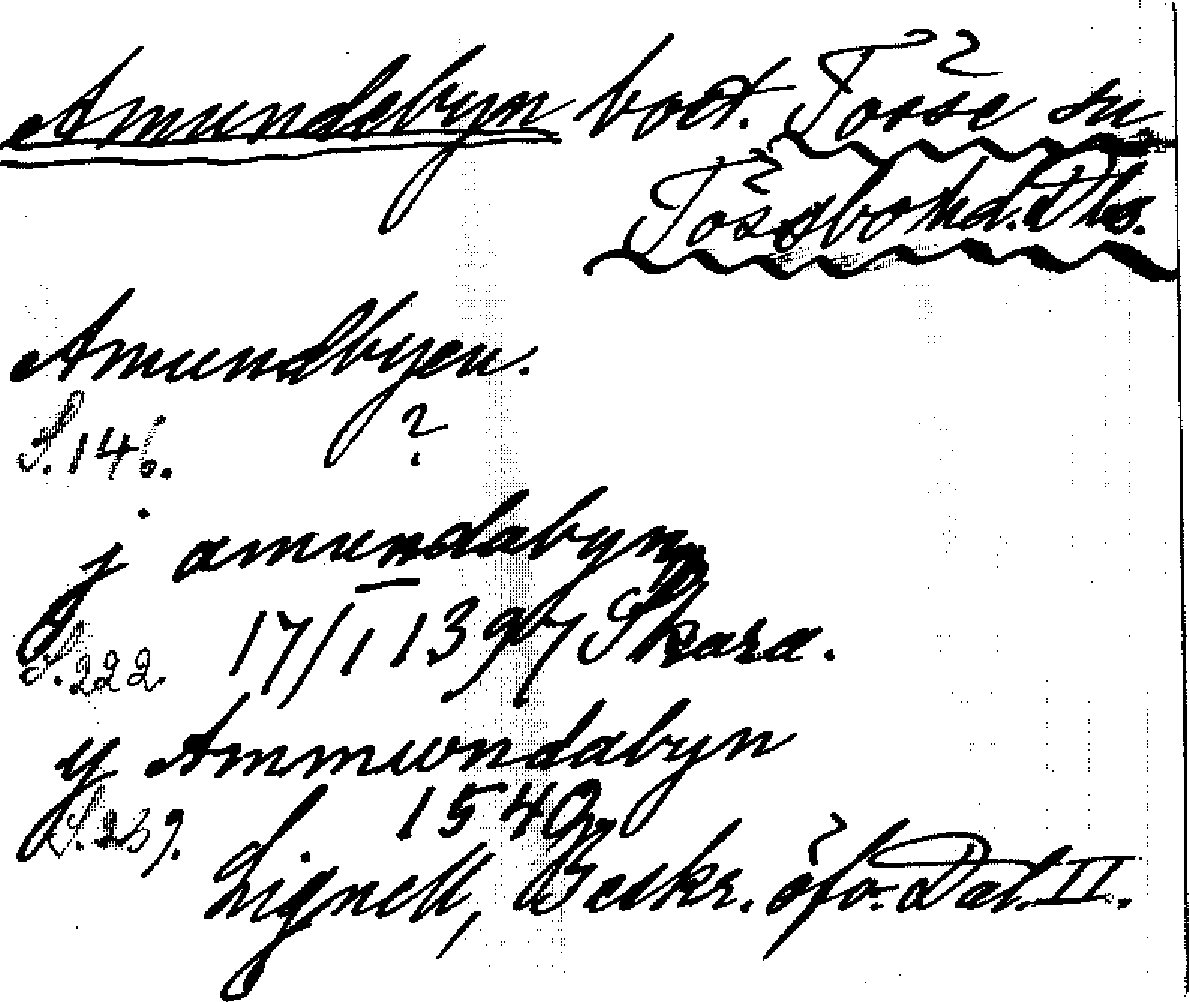 Amundebyn bost. Tösse sn
Tössbo hd. Dls.
Amundbyen.
S. 146. ?
j amundabyn
S. 222. 17/1 1397 Skara.
y Ammwndabyn
S. 239. 1540
Lignell, Beskr. öfv. Dal. II.